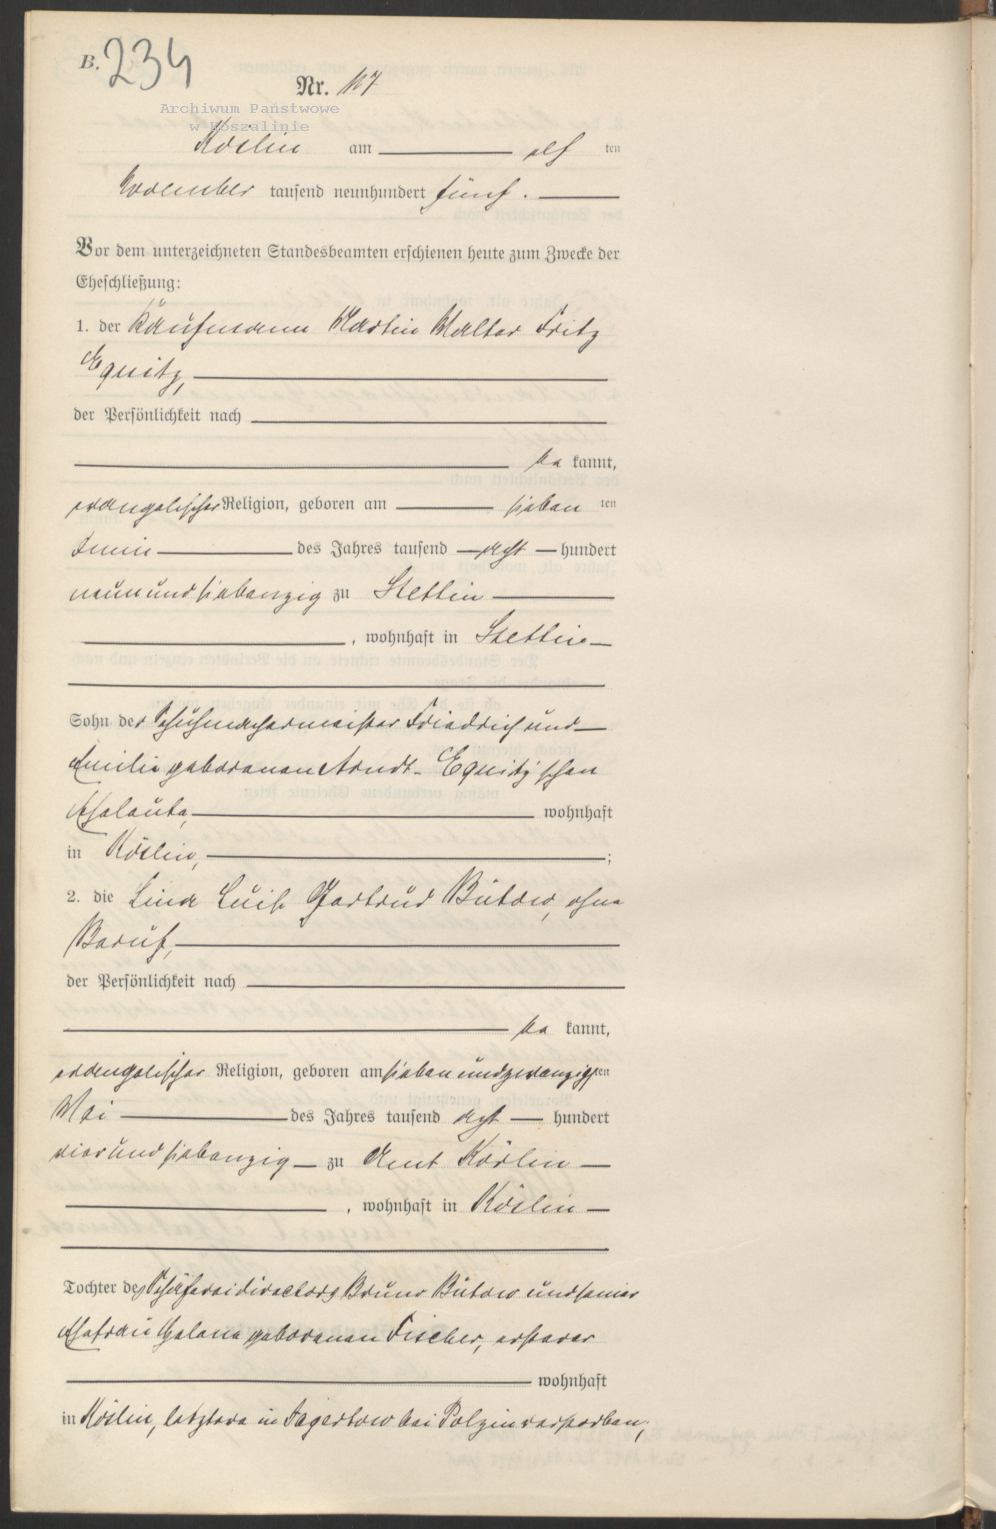 B. 234
Nr. 117
Archiwum Państwowe
w Koszalinie
Köslin am elf ten
November tausend neunhundert fünf.
Vor dem unterzeichneten Standesbeamten erschienen heute zum Zwecke der
Eheschließung:
1. der Kaufmann Martin Walter Fritz
Equitz,
der Persönlichkeit nach
be kannt,
evangelischer Religion, geboren am sieben ten
Juni des Jahres tausend acht hundert
neunundsiebenzig zu Stettin
, wohnhaft in Stettin
Sohn der Schuhmachermeister Friedrich und
Emilie geborenen Arndt- Equitz'schen
Eheleute, wohnhaft
in Köslin, ;
2. die Lina Luise Gertrud Bütow, ohne
Beruf,
der Persönlichkeit nach
be kannt,
evangelischer Religion, geboren am siebenundzwanzigsten
Mai des Jahres tausend acht hundert
vierundsiebenzig zu Amt Körlin
, wohnhaft in Köslin
Tochter des Schäfereidirectors Bruno Bütow und seiner
Ehefrau Helene geborenen Fischer, ersterer
wohnhaft
in Köslin, letztere in Jagertow bei Polzin verstorben,